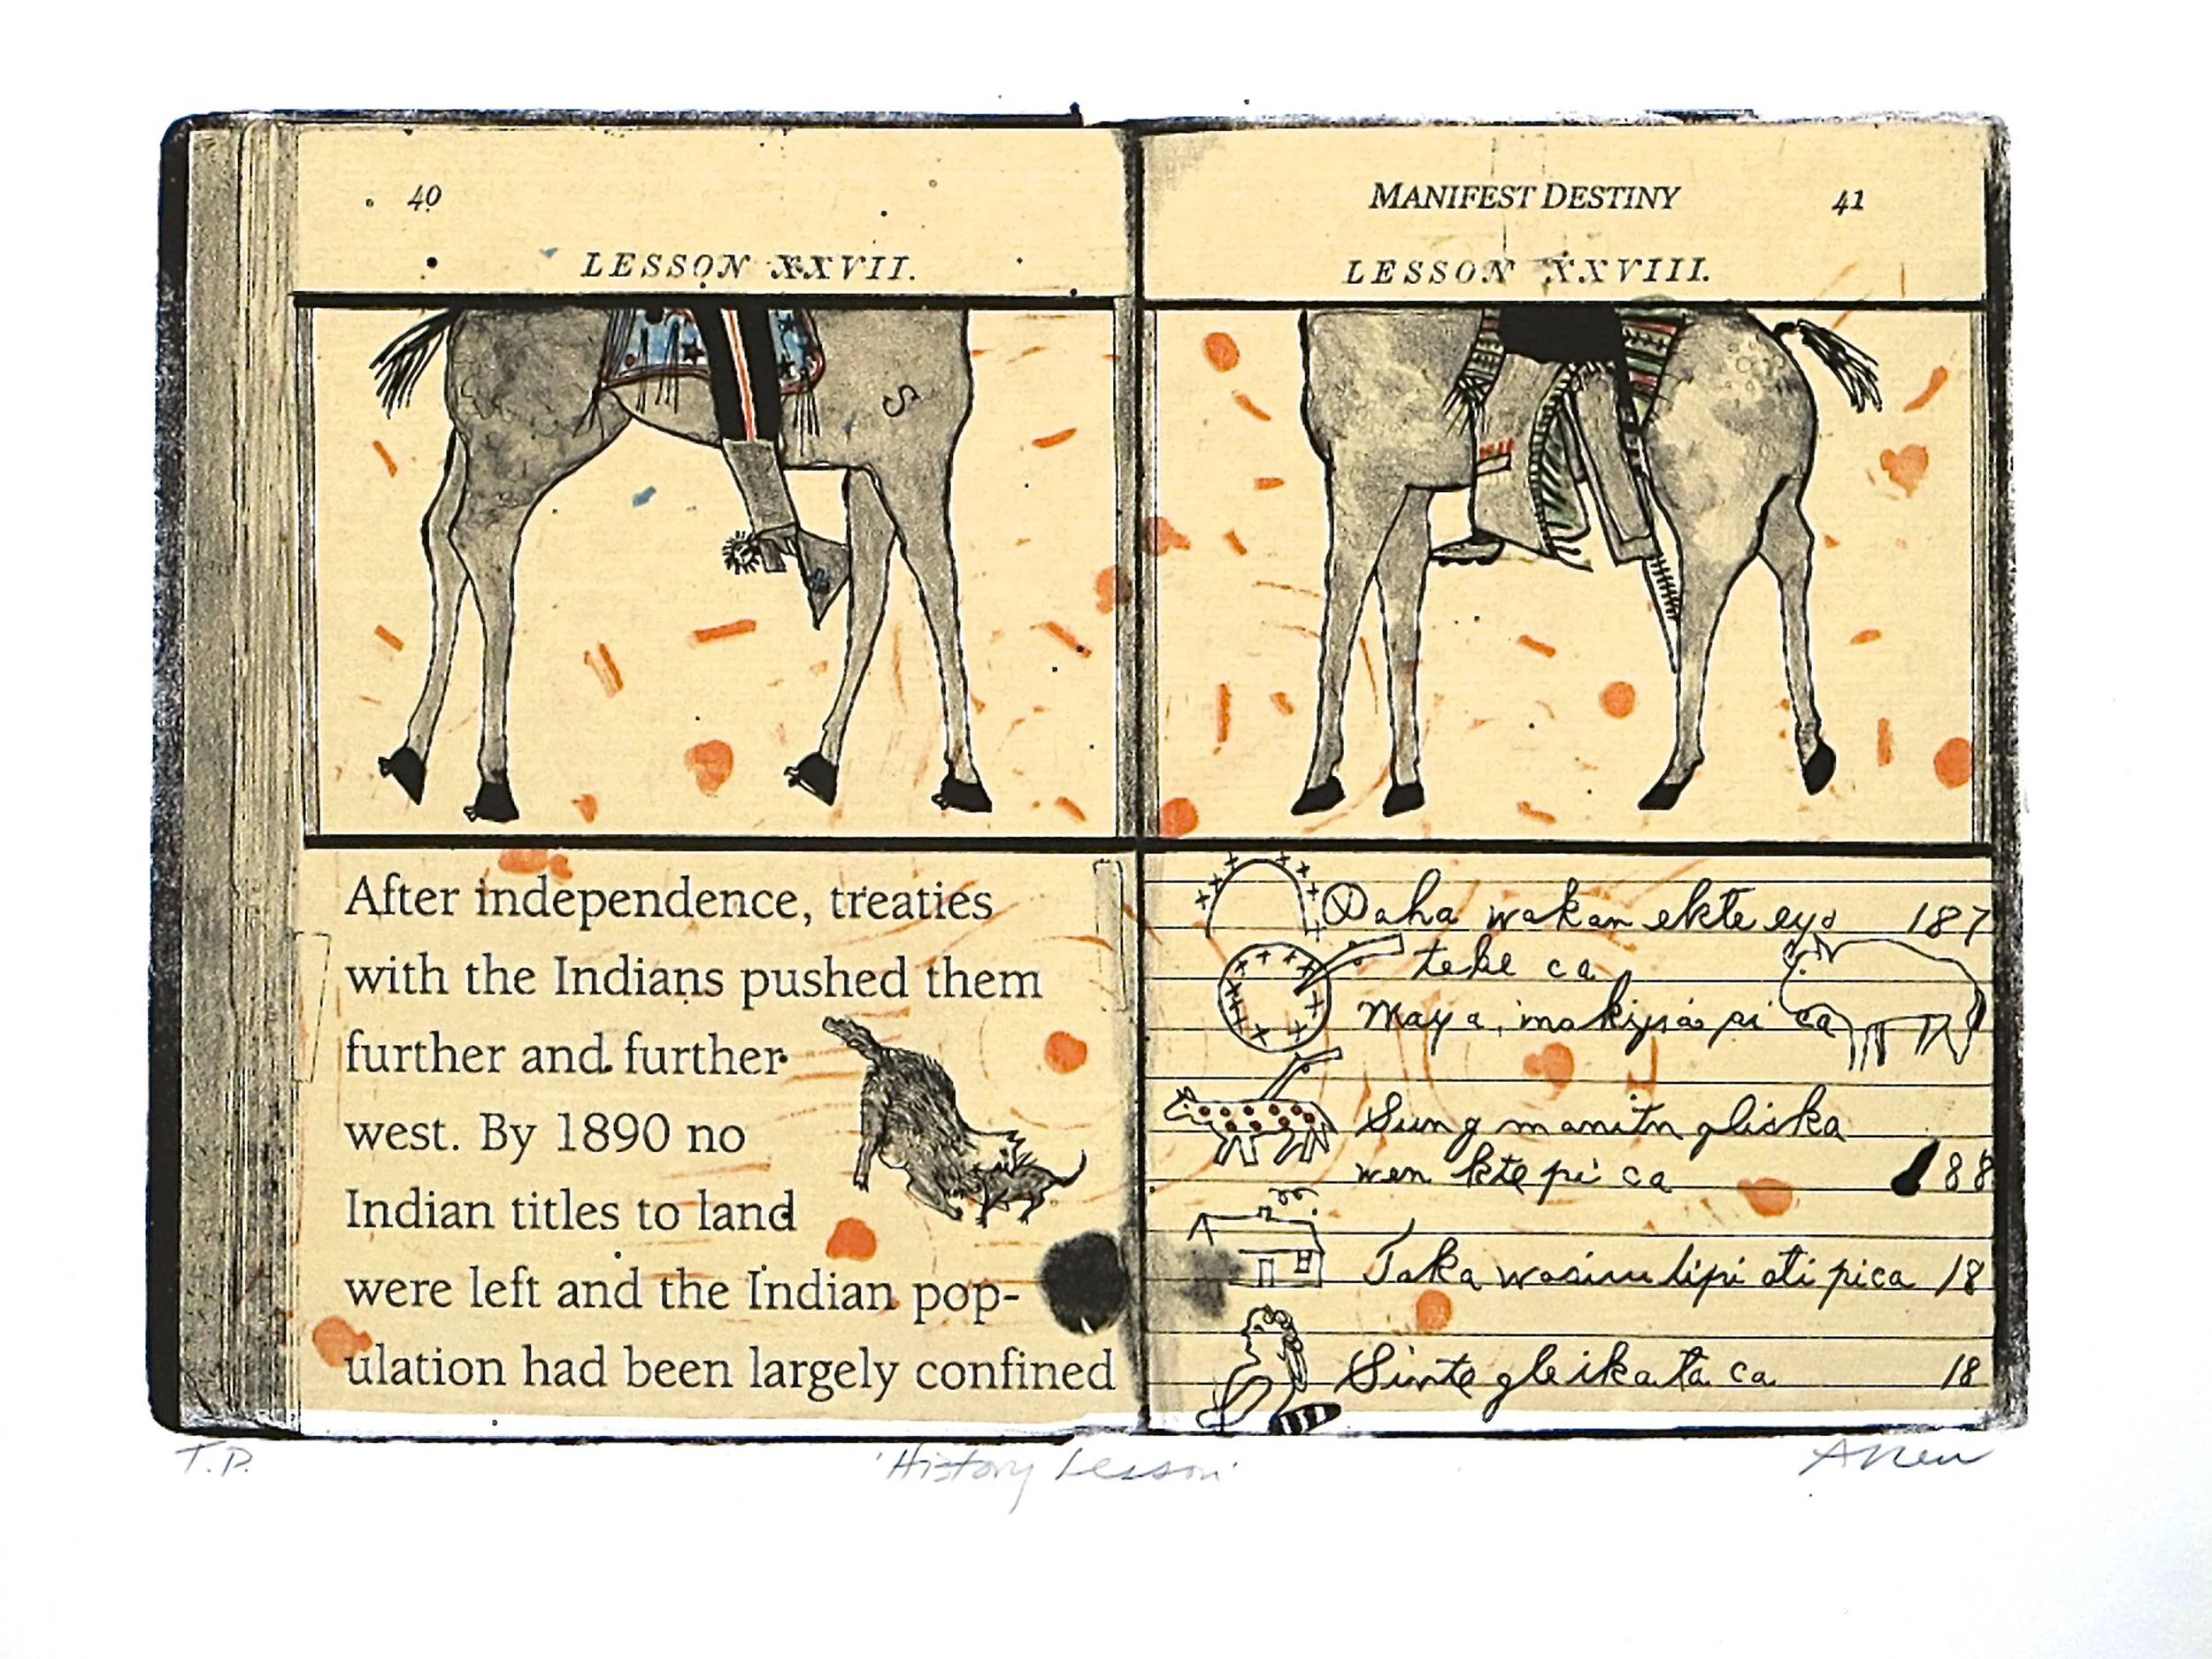 40
LESSON XXVII.
After independence, treaties
with the Indians pushed them
further and further
west. By 1890 no
Indian titles to land
were left and the Indian pop-
ulation had been largely confined
MANIFEST DESTINY 41
LESSON XXVIII.
Paha wakan ekte eyo 187
ca
Maya,
Sung manitu gliska
wen kte pi ca 88
Taka ti pi ca 18
Sinte gleikata ca 18
T.P. 'History Lesson'